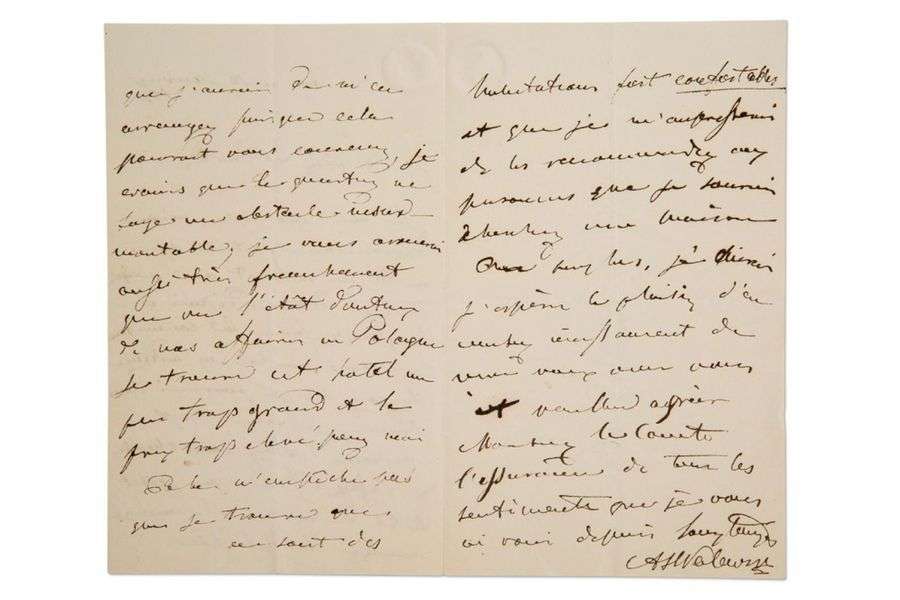 que j'aurais de m'en
arranger puisque cela
pourrait vous convenir, je
crains que le quartier ne
soye un obstacle insur-
montable; je vous assurerai
aussi très franchement
que vu l'état
de nos affaires en Pologne
je trouve cet hotel un
peu trop grand et le
prix trop elevé pour moi
Cela n'empêche pas
que je trouve que
ce sont des
habitations fort confortables
et que je m'empresserai
de les recommander aux
personnes que je saurais
chercher une maison
De plus, j'
j'espère le plaisir d'en
causer incessament de
vive voix avec vous
et veuillez agréer
Monsieur le Comte
l'assurance de tous les
sentiments que je vous
ai voué depuis longtemps